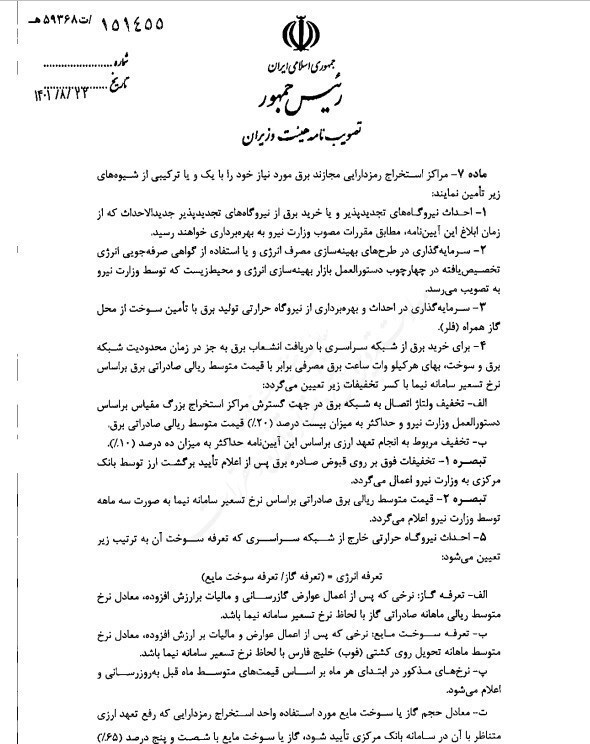 ۱۵۱۴۵۵ /ت۵۹۳۶۸هـ
جمهوری اسلامی ایران
رئیس جمهور
تصویب نامه هیئت وزیران
شماره ........................
تاریخ ۱۴۰۱/۸/۲۳
ماده ۷- مراکز استخراج رمزدارایی مجازند برق مورد نیاز خود را با یک و یا ترکیبی از شیوه‌های
زیر تأمین نمایند:
۱- احداث نیروگاه‌های تجدیدپذیر و یا خرید برق از نیروگاه‌های تجدیدپذیر جدیدالاحداث که از
زمان ابلاغ این آیین‌نامه، مطابق مقررات مصوب وزارت نیرو به بهره‌برداری خواهند رسید.
۲- سرمایه‌گذاری در طرح‌های بهینه‌سازی مصرف انرژی و یا استفاده از گواهی صرفه‌جویی انرژی
تخصیص‌یافته در چهارچوب دستورالعمل بازار بهینه‌سازی انرژی و محیط‌زیست که توسط وزارت نیرو
به تصویب می‌رسد.
۳- سرمایه‌گذاری در احداث و بهره‌برداری از نیروگاه حرارتی تولید برق با تأمین سوخت از محل
گاز همراه (فلر).
۴- برای خرید برق از شبکه سراسری با دریافت انشعاب برق به جز در زمان محدودیت شبکه
برق و سوخت، بهای هرکیلو وات ساعت برق مصرفی برابر با قیمت متوسط ریالی صادراتی برق براساس
نرخ تسعیر سامانه نیما با کسر تخفیفات زیر تعیین می‌گردد:
الف- تخفیف ولتاژ اتصال به شبکه برق در جهت گسترش مراکز استخراج بزرگ مقیاس براساس
دستورالعمل وزارت نیرو و حداکثر به میزان بیست درصد (۲۰٪) قیمت متوسط ریالی صادراتی برق.
ب- تخفیف مربوط به انجام تعهد ارزی براساس این آیین‌نامه حداکثر به میزان ده درصد (۱۰٪).
تبصره ۱- تخفیفات فوق بر روی قبوض صادره برق پس از اعلام تأیید برگشت ارز توسط بانک
مرکزی به وزارت نیرو اعمال می‌گردد.
تبصره ۲- قیمت متوسط ریالی برق صادراتی براساس نرخ تسعیر سامانه نیما به صورت سه ماهه
توسط وزارت نیرو اعلام می‌گردد.
۵- احداث نیروگاه حرارتی خارج از شبکه سراسری که تعرفه سوخت آن به ترتیب زیر
تعیین می‌شود:
تعرفه انرژی = (تعرفه گاز/ تعرفه سوخت مایع)
الف- تعرفه گاز: نرخی که پس از اعمال عوارض گازرسانی و مالیات برارزش افزوده، معادل نرخ
متوسط ریالی ماهانه صادراتی گاز با لحاظ نرخ تسعیر سامانه نیما باشد.
ب- تعرفه سوخت مایع: نرخی که پس از اعمال عوارض و مالیات بر ارزش افزوده، معادل نرخ
متوسط ماهانه تحویل روی کشتی (فوب) خلیج فارس با لحاظ نرخ تسعیر سامانه نیما باشد.
پ- نرخ‌های مذکور در ابتدای هر ماه بر اساس قیمت‌های متوسط ماه قبل به‌روزرسانی و
اعلام می‌شود.
ت- معادل حجم گاز یا سوخت مایع مورد استفاده واحد استخراج رمزدارایی که رفع تعهد ارزی
متناظر با آن در سامانه بانک مرکزی تأیید شود، گاز یا سوخت مایع با شصت و پنج درصد (۶۵٪)